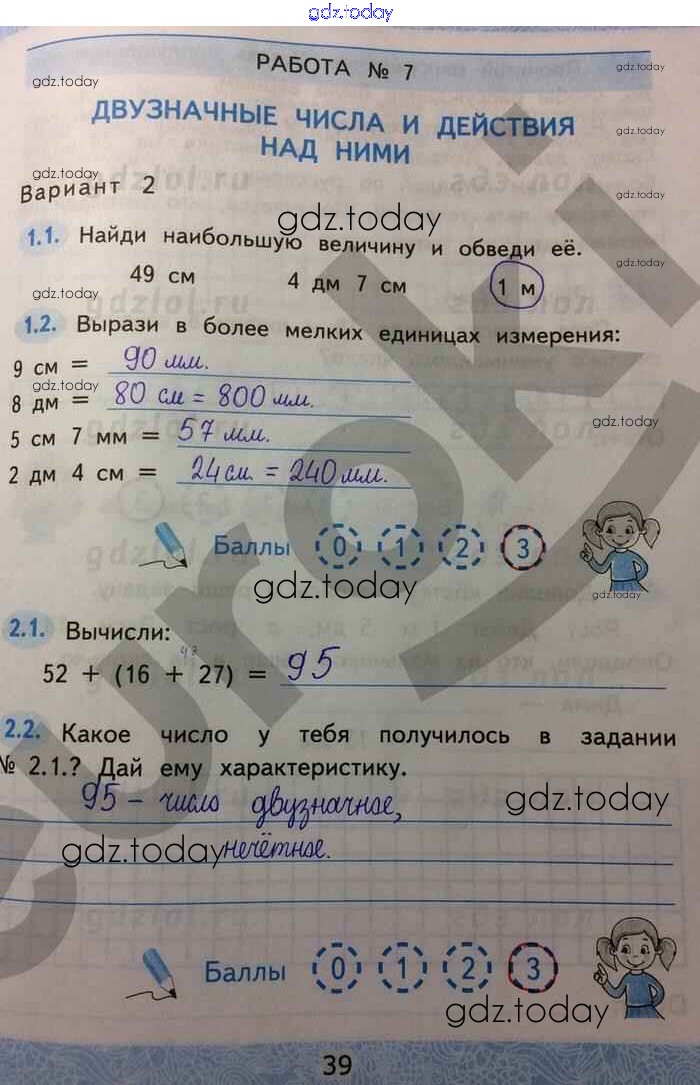 gdz.today
РАБОТА № 7
gdz.today
gdz.today
ДВУЗНАЧНЫЕ ЧИСЛА И ДЕЙСТВИЯ
НАД НИМИ
gdz.today
gdz.today
Вариант 2
gdz.today
1.1. Найди наибольшую величину и обведи её.
49 см 4 дм 7 см 1 м
gdz.today
gdz.today
1.2. Вырази в более мелких единицах измерения:
9 см = 90 мм.
gdz.today
8 дм = 80 см = 800 мм.
gdz.today
5 см 7 мм = 57 мм.
2 дм 4 см = 24 см = 240 мм.
Баллы 0 1 2 3
gdz.today
2.1. Вычисли:
43
52 + (16 + 27) = 95
2.2. Какое число у тебя получилось в задании
№ 2.1.? Дай ему характеристику.
95 – число двузначное,
gdz.today
gdz.today
нечётное.
Баллы 0 1 2 3
gdz.today
39